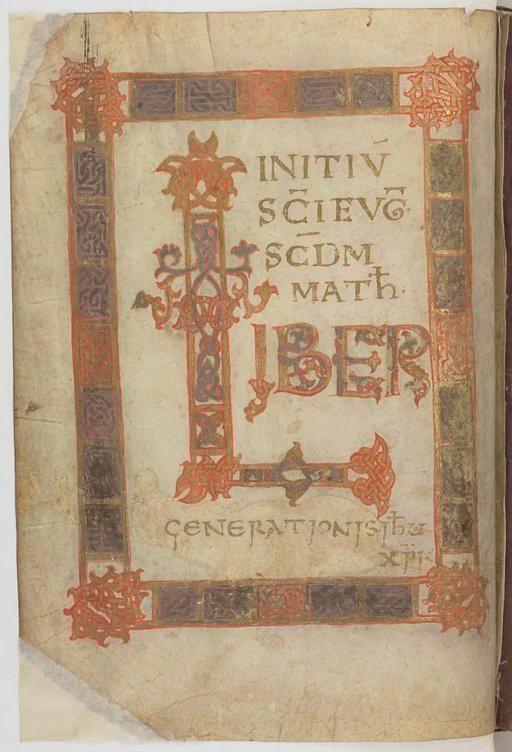 INITIV̄
SC̄I EVG̅
SC̄DM
MATħ·
LIBER
GENERATIONIS iħu
XPI·